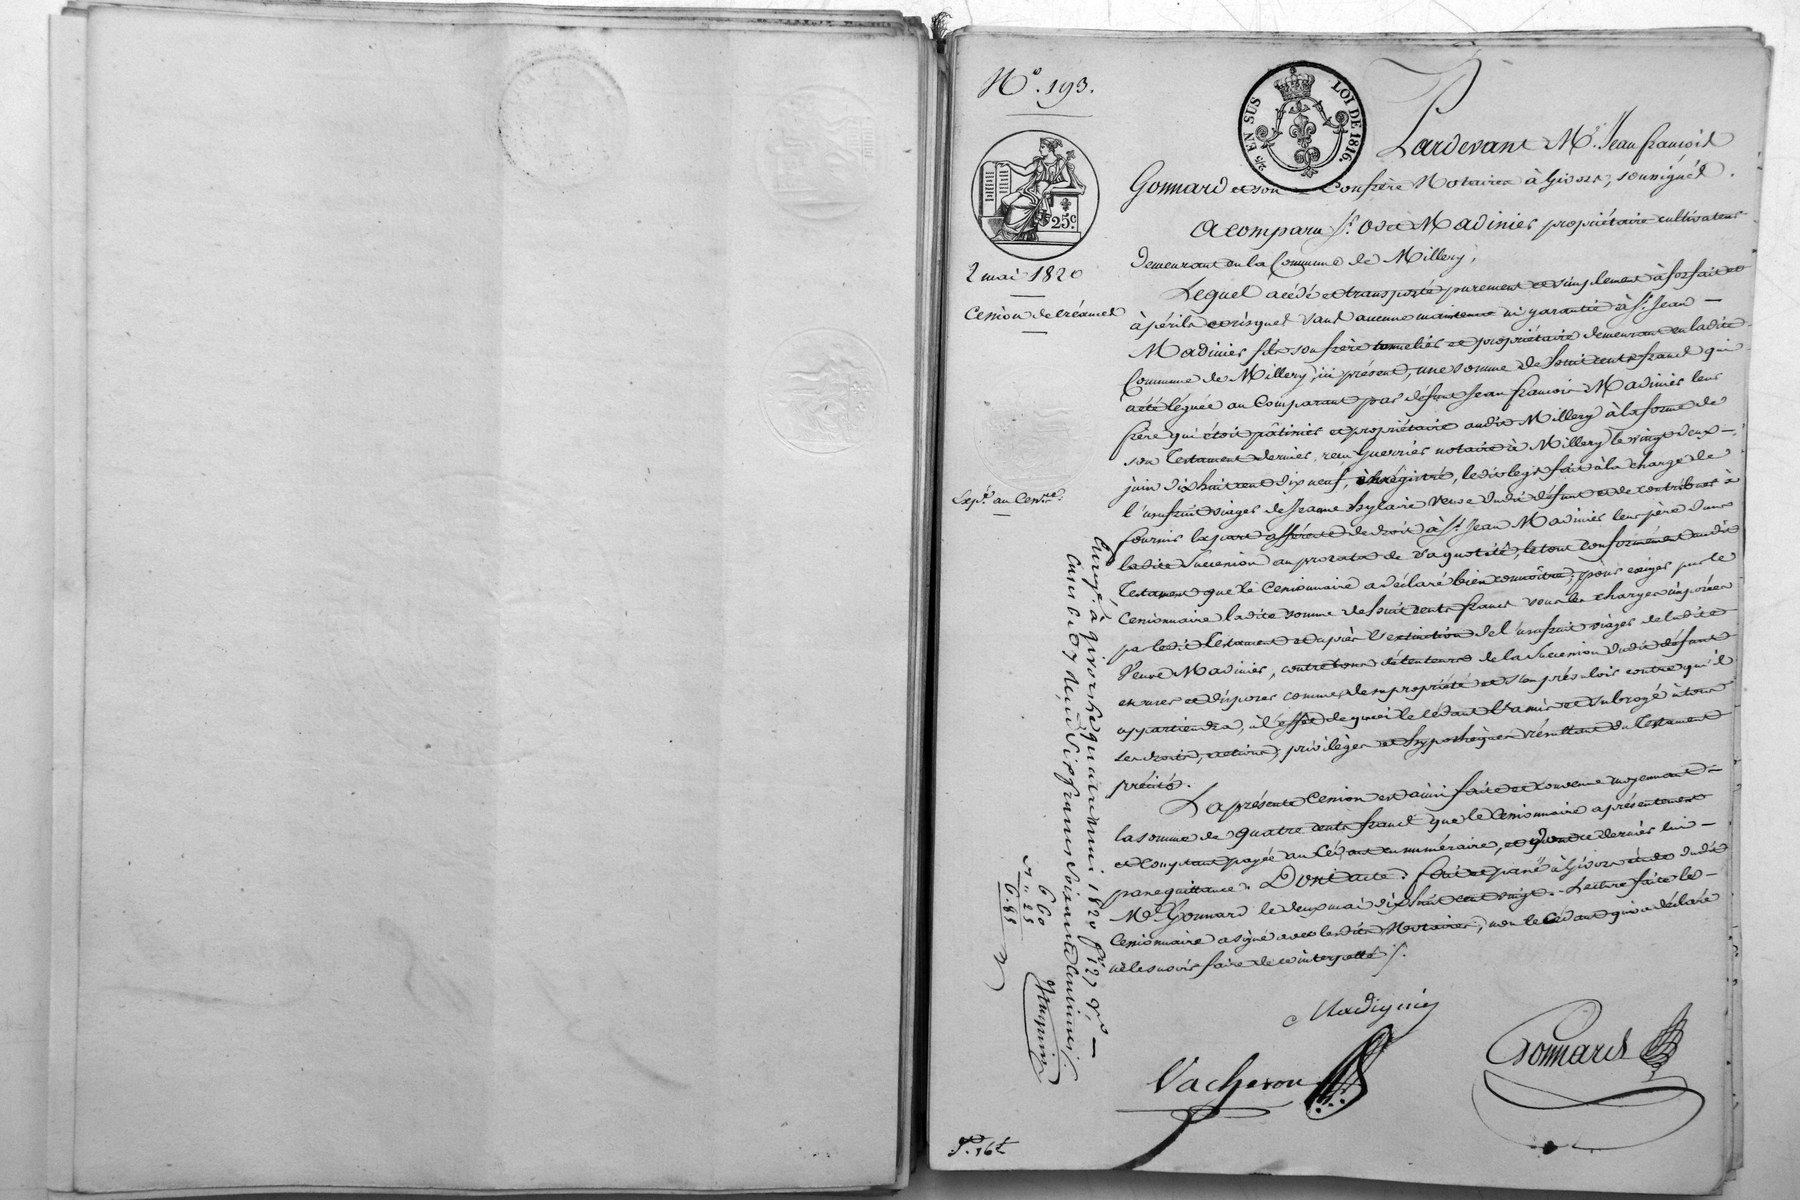 N.º 193.
2/5 EN SUS LOI DE 1816.
25.c
2 mai 1820
Cession de créances
Exp.é au Cess.re
Pardevant M.e Jean françois
Gonnard et son Confrère Notaires à Givors, soussignés.
A comparu S.r Odet Madinier propriétaire cultivateur
demeurant en la Commune de Millery,
Lequel a cédé et transporté purement et simplement à forfait et
à périls et risques sans aucune maintenue ni garantie à S.r Jean
Madinier fils son frère tonnelier et propriétaire demeurant en la dite
Commune de Millery, ici présent, une somme de huit cents francs qui
a été léguée au Comparant par défunt Jean françois Madinier leur
frère qui étoit pâtissier et propriétaire audit Millery à la forme de
son Testament dernier, reçu Guerrier notaire à Millery le vingt deux
juin dix huit cent dix neuf, enregistré, le dit legs fait à la charge de
l'usufruit viager de Jeanne hylaire veuve dudit défunt et de contribuer à
fournir la part afférente de droit à S.r Jean Madinier leur père dans
la dite Succession au prorata de sa quotité, le tout conformément audit
Testament que le Cessionnaire a déclaré bien connoître; pour exiger par le
Cessionnaire la dite somme de huit cents francs sous les charges imposées
par le dit Testament et après l'extinction de l'usufruit viager de la dite
Veuve Madinier, contre tous détenteurs de la Succession dudit défunt
en user et disposer comme de sa propriété et s'en prévaloir contre qu'il
appartiendra, à l'effet de quoi le Cédant l'a mis et subrogé à tous
ses droits, actions, privilèges et hypothèques résultant du Testament
précité.
La présente Cession est ainsi faite et convenue moyennant
la somme de quatre cents francs que le Cessionnaire a présentement
et comptant payée au Cédant en numéraire, et dont ce dernier lui
passe quittance. Dont acte. fait et passé à Givors étude dudit
M.e Gonnard le deux mai dix huit cent vingt. Lecture faite le
Cessionnaire a signé avec les dits Notaires, non le Cédant qui a déclaré
ne le savoir faire de ce interpellé ./.
Madignier
Vacheron
Gonnard
Enreg.é à Givors le quatre mai 1820 f.o 127 v.o
reçu six francs soixante centimes
6 60
25
6.85
P. 16